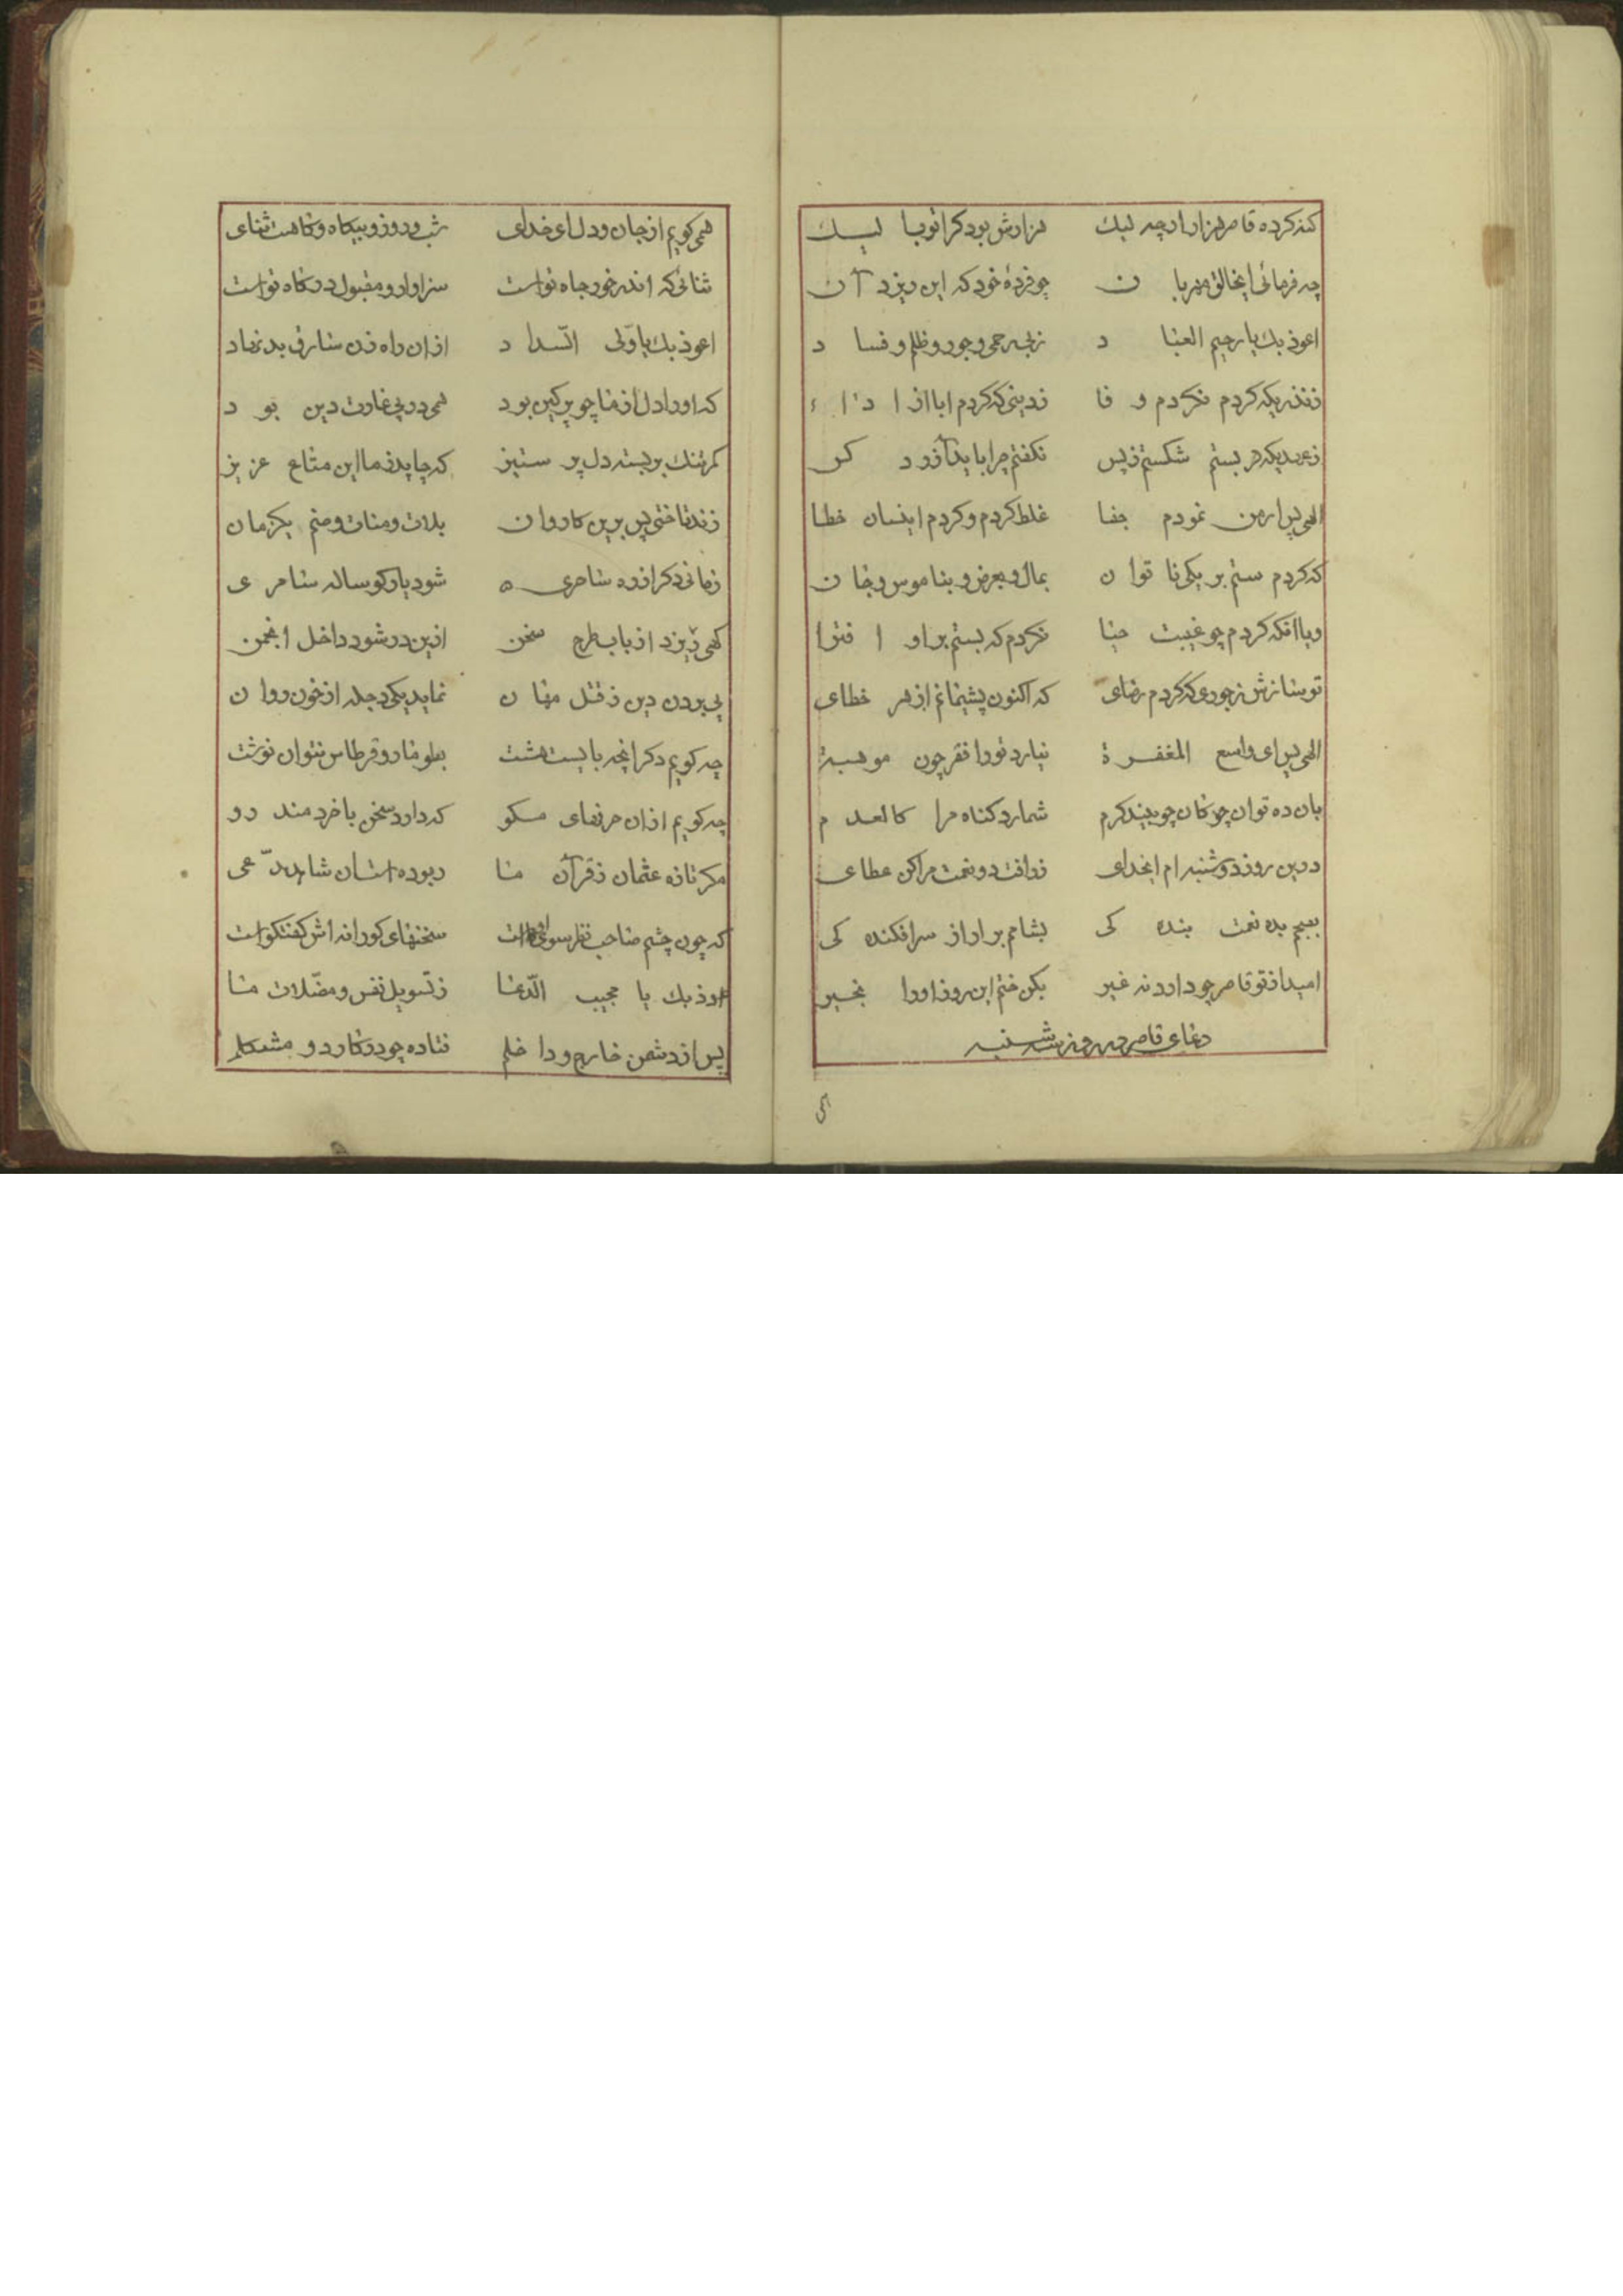 کنه کرده قاصر هزار ارچه لیك هزارش بود کر اتوبا لیــك
چه فرمائی ایخالق مهربان چو فردهٔ خود که این ریزد آن
اعوذ بك یا رحیم العباد زبیرحمی و جور و ظلم و فساد
زنذریکه کردم نکردم وفا زدینی که کردم ابا از ادا
زعهدیکه هر بستم شکستم زپس نکفتم مرا باید آزرد کس
الهی پس ار من نمودم جفا غلط کردم و کردم اینسان خطا
که کردم ستم بر یکی ناتوان بمال و بعرض و بناموس و جان
ویا آنکه کردم چو غیبت نکردم که بستم بر او افترا
تو سازش زجوری که کردم رضای که اکنون پشیمانم از هر خطای
الهی پس ای واسع المغفرة نیارد تورا فقر چون موهبة
بان ده توان چو کان چو بیند کرم شمارد کناه مرا کالعدم
درین روز دوشنبه ام ایخدای زرافت دو نعمت مرا کن عطای
بصبحم بده نعمت بنده کی بشامم بر اراز سرافکنده کی
امید از تو قاصر چو دارد نه غیر بکن ختم این روز اورا بخیر
دعای قاصر در روز سه شنبه
همی کویم از جان و دل ای خدای شب و روز و بیکاه و کاهت ثنای
ثنائی که اندر خور جاه توست سزاوار و مقبول درکاه توست
اعوذ بك یا ولی السداد ازان راه زن سارق بد نهاد
که اورا دل از ما چو پر کین بود همی در پی غارت دین بود
کمر تنك بر بسته دل پر ستیز که چاپد زما این متاع عزیز
زند تاختی پس برین کاروان بلات و منات و صنم یکزمان
زمانی دکر از ره سامری شود یار کوساله سامری
کهی ریزد از باب طرح سخن ازین در شود داخل انجمن
پی بردن دین زقتل مهان نماید یکی دجله از خون روان
چه کویم دکر آنچه بایست هشت بطومار و قرطاس نتوان نوشت
چه کویم ازان حرفهای مکو که دارد سخن با خردمند رو
مکر تازه عثمان زقرآن ما ربوده است آن شاهد مدعی
که چون چشم صاحب نظر سوی اوست سخنهای کورانه اش کفتکوست
اعوذ بك یا مجیب الدعا زتسویل نفس و مضلات ما
پس از دشمن خارج و داخلم فتاده چو در کار دو مشکلم